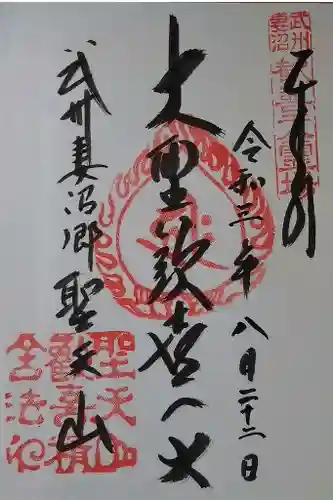 奉拝
令和三年 八月二十二日
大聖歓喜天
武州妻沼郷 聖天山
武州
妻沼
聖天山